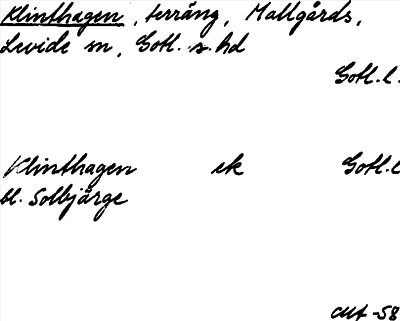 Klinthagen, terräng, Mallgårds,
Levide sn, Gotl. s. hd
Gotl. l.
Klinthagen ek Gotl. l
bl. Solbjärge